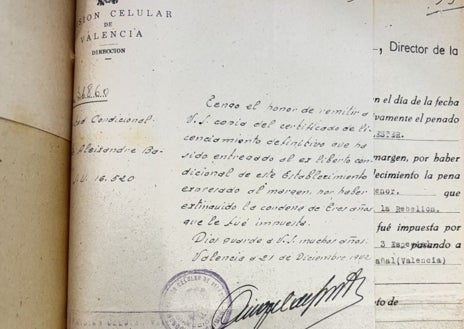 PRISION CELULAR
DE
VALENCIA
DIRECCION
Condicional
Aleixandre Ba-
16.520
Tengo el honor de remitir a
V.S. copia del certificado de li-
cenciamiento definitivo que ha
sido entregado al ex liberto con-
dicional de este Establecimiento
expresado al margen, por haber
extinguido la condena de tres años
que le fué impuesta.
Dios guarde a V.S. muchos años.
Valencia a 21 de Diciembre 1942
, Director de la
en el día de la fecha
ivamente el penado
ESTER.
margen, por haber
lecimiento la pena
enor. que
la Rebelion.
fué impuesta por
3 pasando a
añal(Valencia)
to de